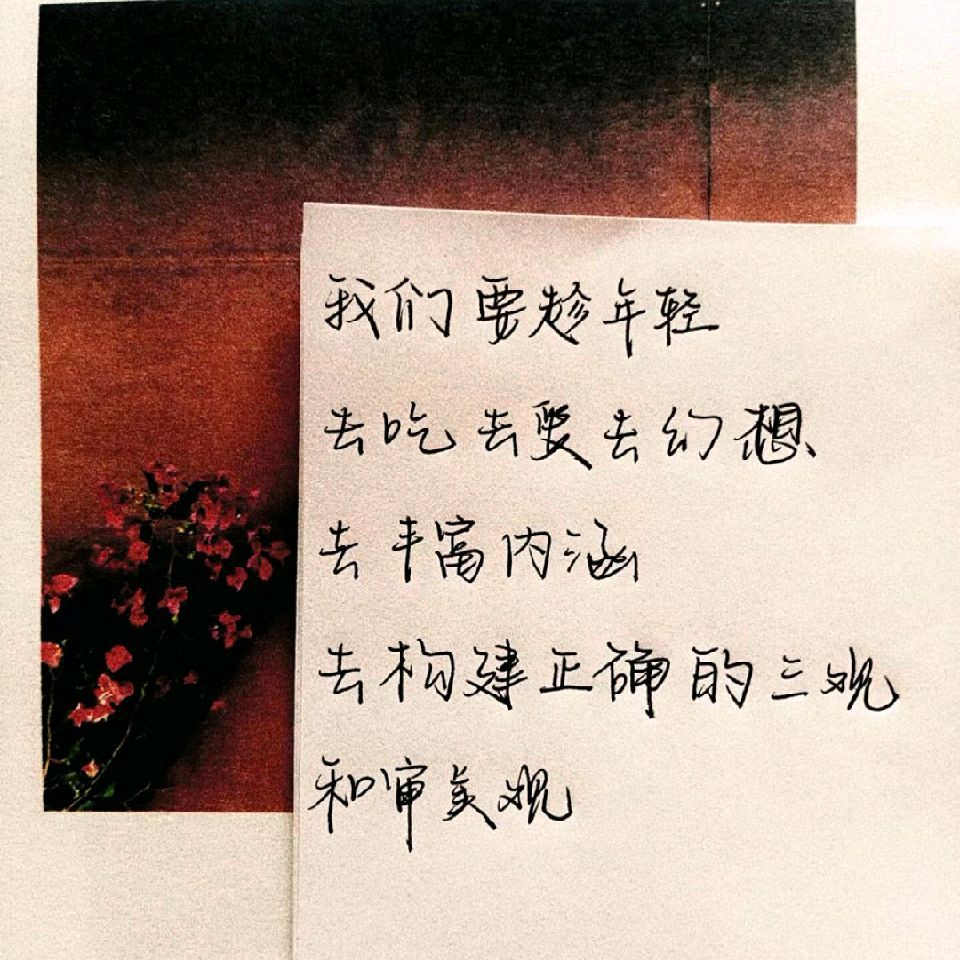 我们要趁年轻
去吃去爱去幻想
去丰富内涵
去构建正确的三观
和审美观